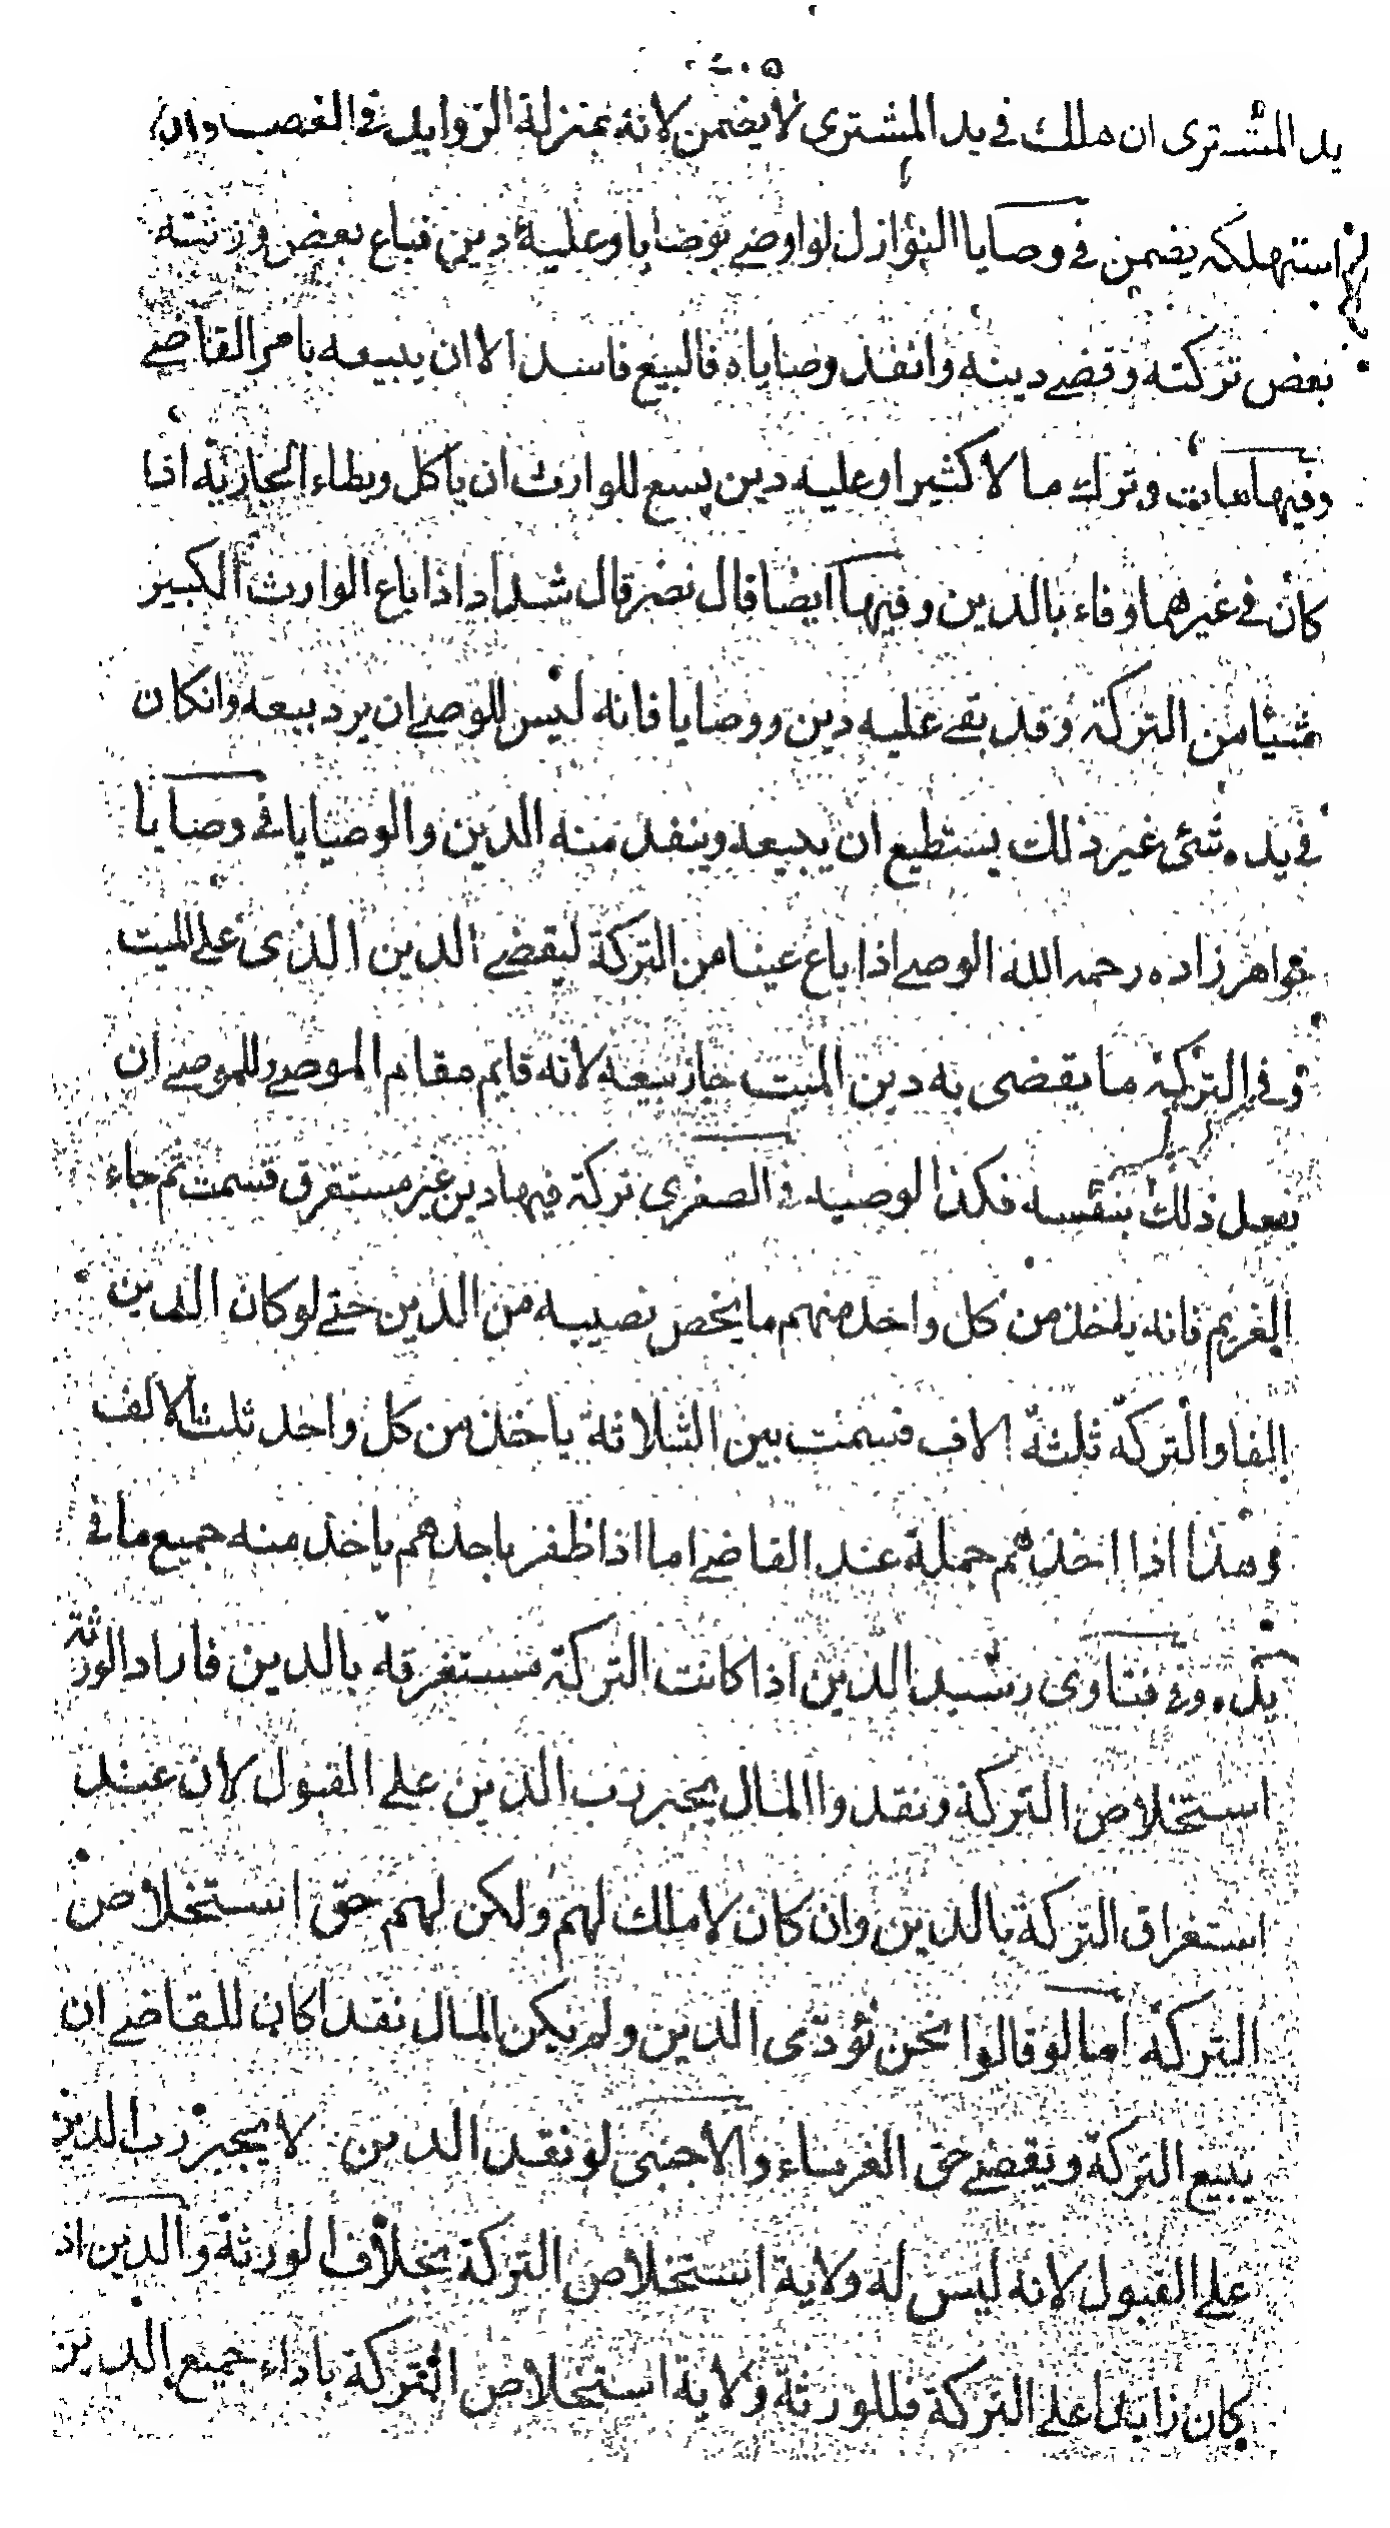 يد المشترى ان هلك في يد المشترى لا يضمن لانه بمنزلة الزوايد في الغصب وان
استهلكه يضمن في وصايا النوازل لو اوصى بوصايا وعليه دين فباع بعض ورثته
بعض تركته وقضى دينه وانفذ وصاياه فالبيع فاسد الا ان يبيعه بامر القاضى
وفيها مات وترك مالا كثيرا وعليه دين يسع للوارث ان ياكل ويطاء الجارية اذا
كان في غيرهما وفاء بالدين وفيها ايضا قال نصر قال شداد اذا باع الوارث الكبير
شيئا من التركة وقد بقى عليه دين ووصايا فانه ليس للوصى ان يرد بيعه وانكان
في يده شئ غير ذلك يستطيع ان يبيعه وينفد منه الدين والوصايا في وصايا
خواهر زاده رحمه الله الوصى اذا باع عينا من التركة ليقضى الدين الذى على الميت
وفى التركة ما يقضى به دين الميت جاز بيعه لانه قايم مقام الموصى وللموصى ان
يفعل ذلك بنفسه فكذا لوصيه في الصغرى تركة فيها دين غير مستغرق قسمت ثم جاء
الغريم فانه ياخذ من كل واحد منهم ما يخص نصيبه من الدين حتى لو كان الدين
الفا والتركة ثلثة الاف قسمت بين الثلاثة ياخذ من كل واحد ثلث الالف
وهذا اذا اخذهم جملة عند القاضى اما اذا ظفر باحدهم ياخذ منه جميع ما في
يده وفى فتاوى رشيد الدين اذا كانت التركة مستغرقة بالدين فاراد الورثة
استخلاص التركة ونقدوا المال يجبر رب الدين على القبول لان عند
استغراق التركة بالدين وان كان لا ملك لهم ولكن لهم حق استخلاص
التركة اما لو قالوا نحن نؤدى الدين ولم يكن المال نقدا كان للقاضى ان
يبيع التركة ويقضى حق الغرماء والاجنبى لو نقد الدين لا يجبر رب الدين
على القبول لانه ليس له ولاية استخلاص التركة بخلاف الورثة والدين اذ
كان زايدا على التركة فللورثة ولاية استخلاص التركة باداء جميع الدين